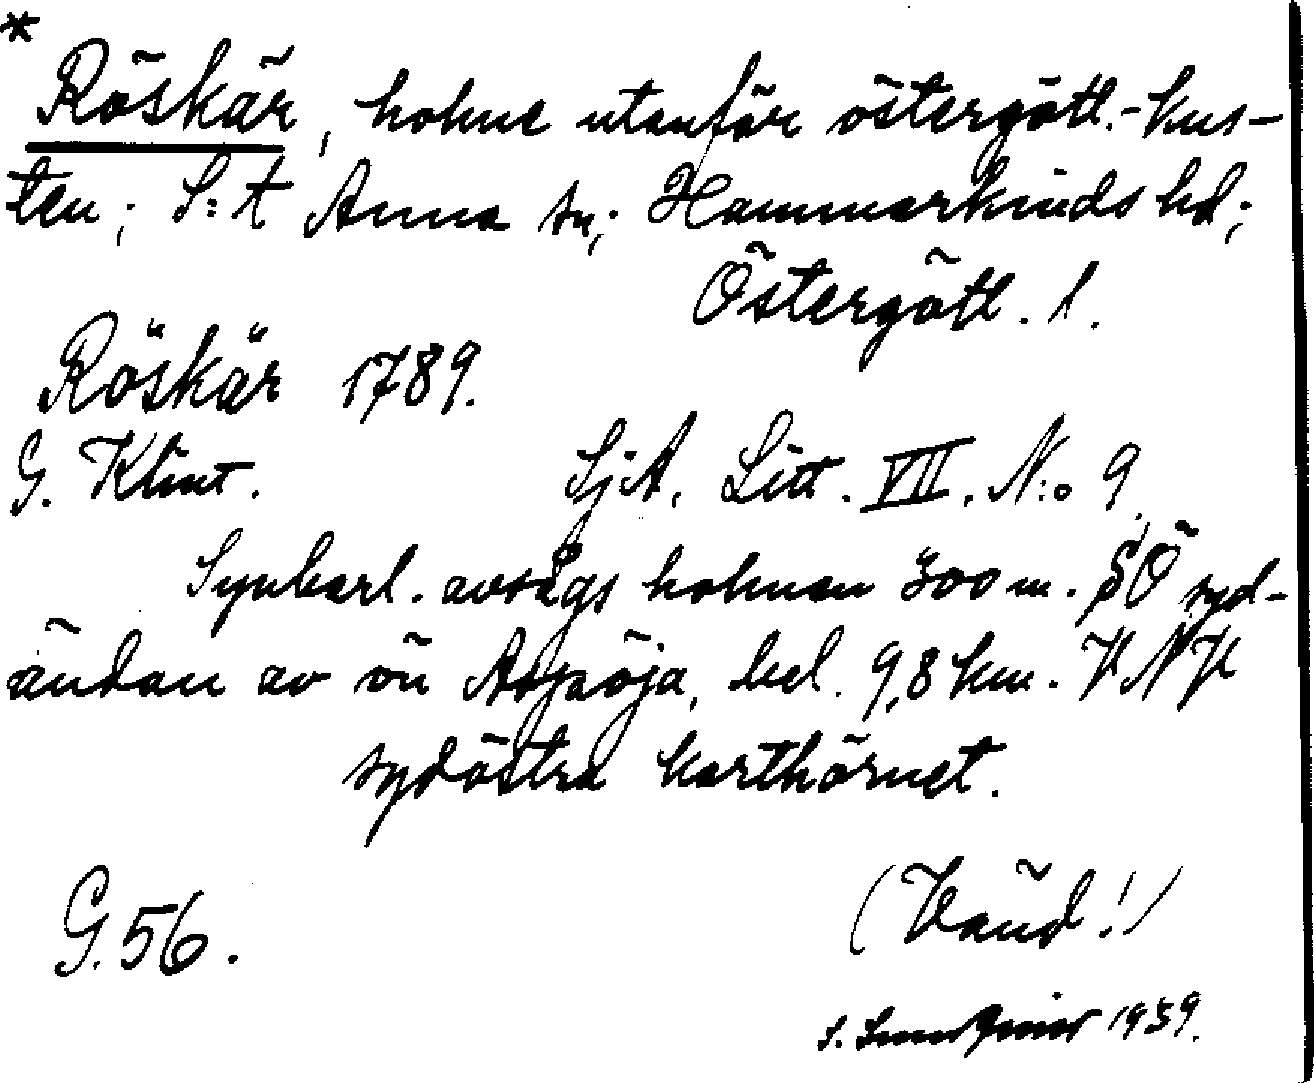 *
Röskär, holme utanför östergötl.-kus-
ten; S:t Anna sn; Hammarkinds hd;
Östergötl. l.
Röskär 1789.
G. Klint. SjA. Litt. VII. N:o 9.
Synbarl. avsågs holmen 300 m. SÖ syd-
ändan av ön Aspöja, bel. 9,8 km. VNV
sydöstra karthörnet.
G. 56. (Vänd!)
S. 1939.